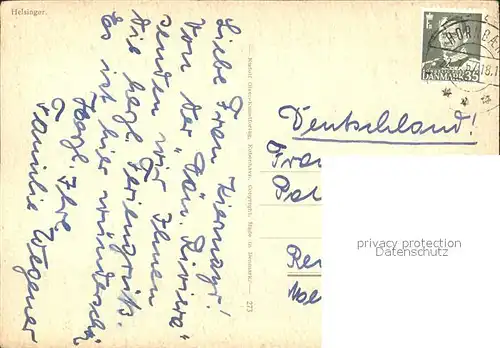 Helsingør.
Liebe Frau Kiermayr!
Von der „Dän. Riviera“
senden wir Ihnen
die herzl. Feriengrüße.
Es ist hier wunderschön
Herzl. Ihre
Familie Wegener
Rudolf Olsens Kunstforlag, København. Copyright. Made in Denmark.— 273
HORNBÆ
18.1
DANMARK 35
Deutschland!
privacy protection
Datenschutz